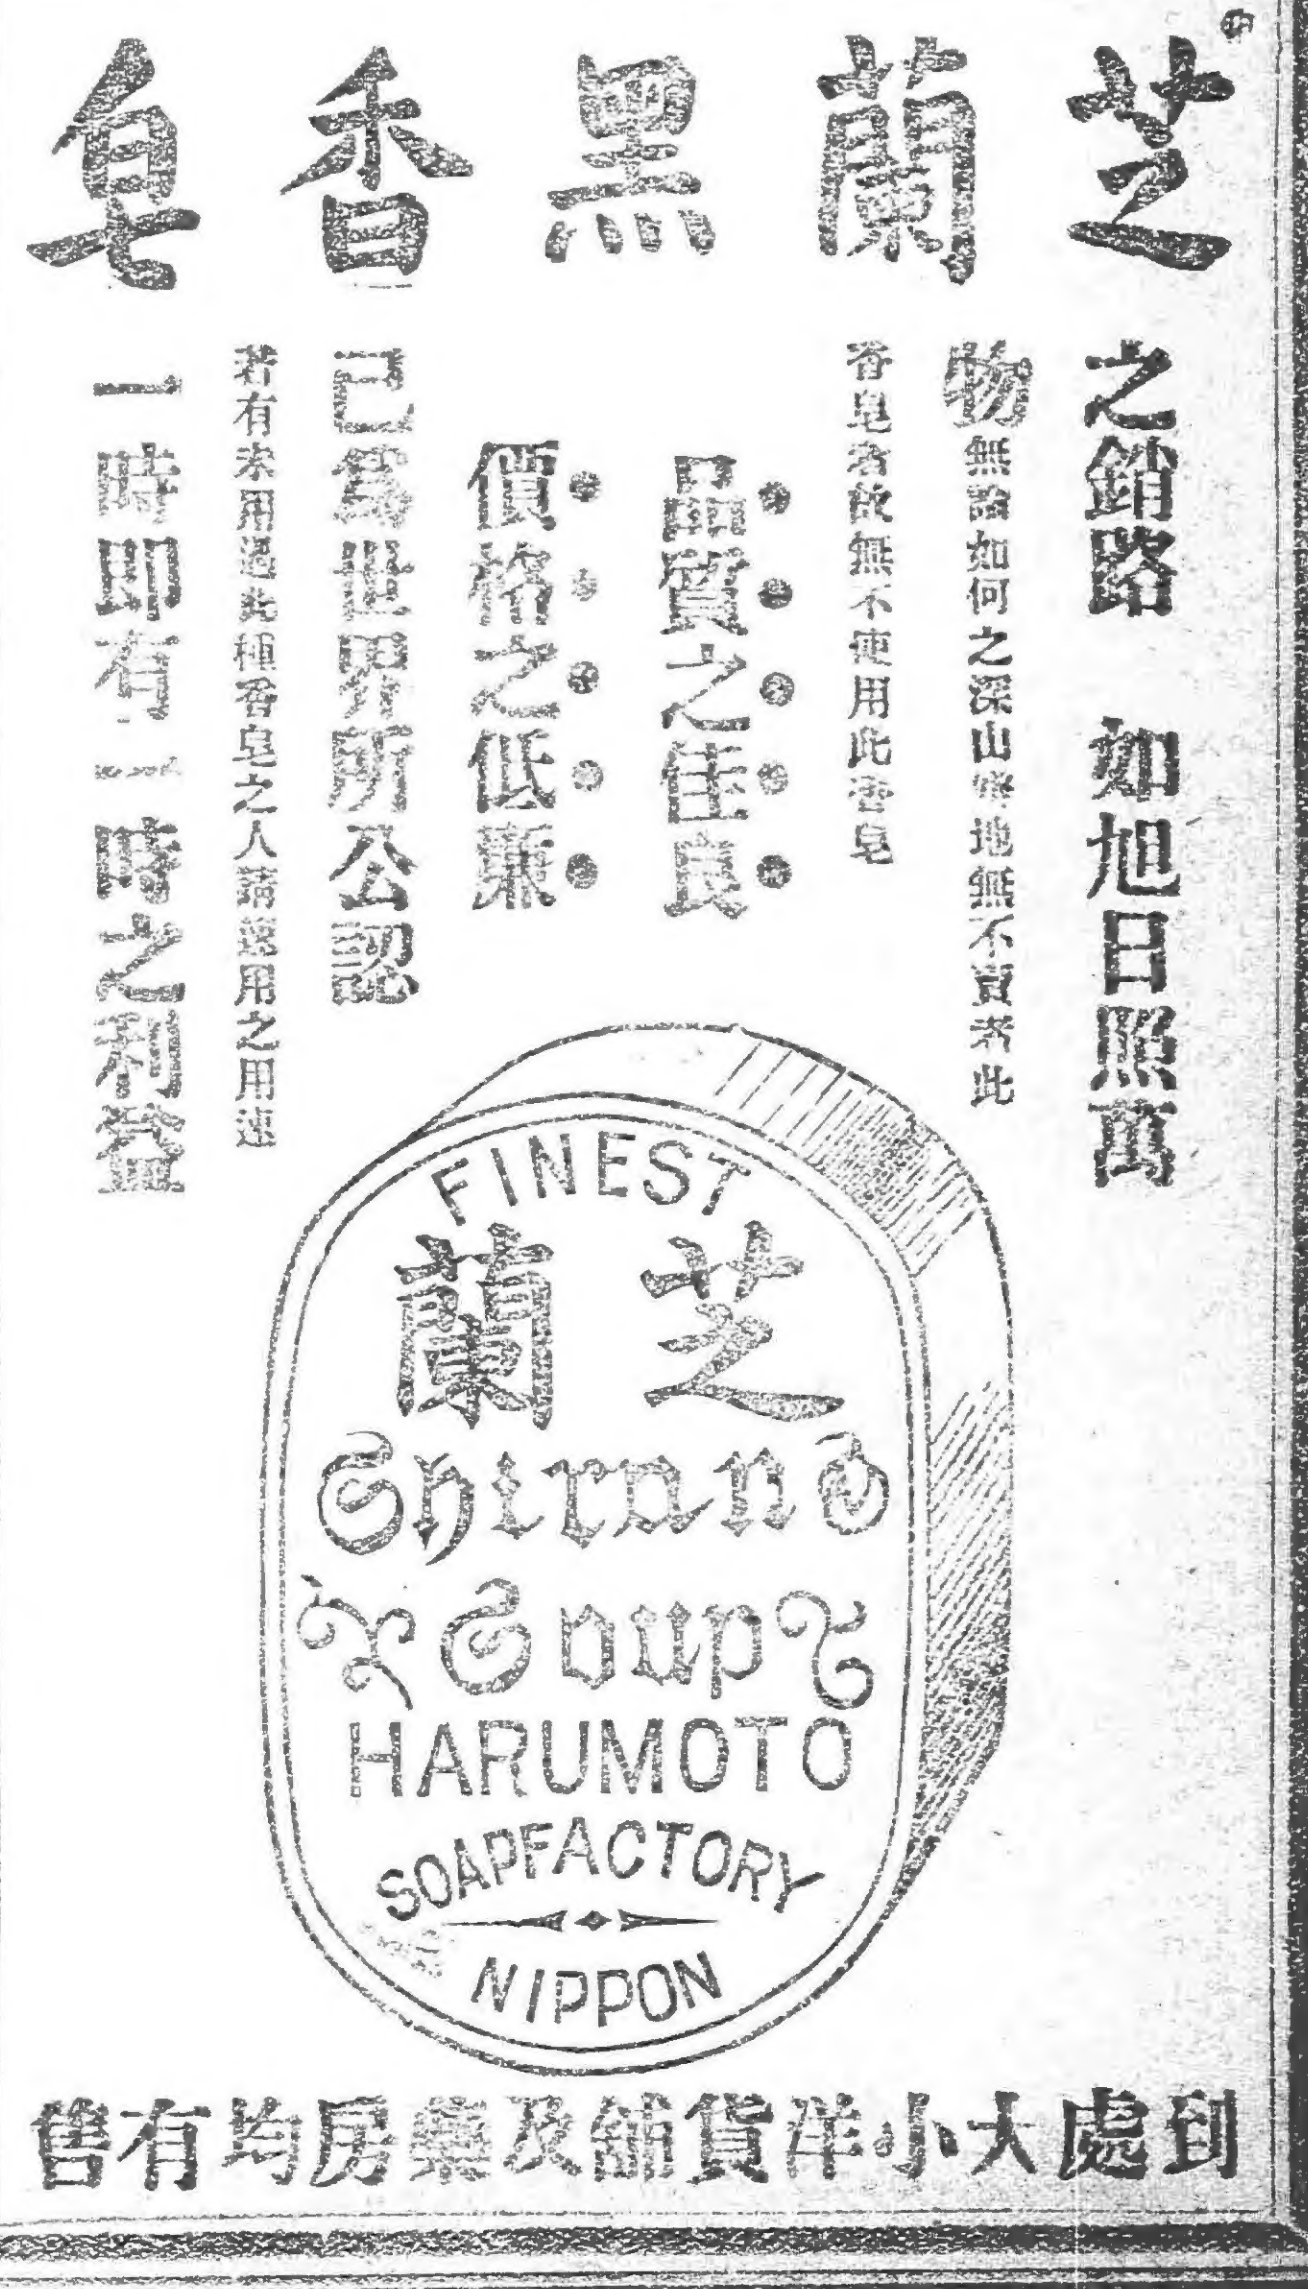 芝蘭黑香皂
之銷路 如旭日照萬
物無論如何之深山窮地無不賣者此
香皂者故無不使用此香皂
品質之佳良
價格之低廉
已為世界所公認
若有未用過此種香皂之人請試用之用速
一時即有一時之利益
FINEST
芝蘭
Shiran
Soap
HARUMOTO
SOAPFACTORY
NIPPON
到處大小洋貨舖及藥房均有售